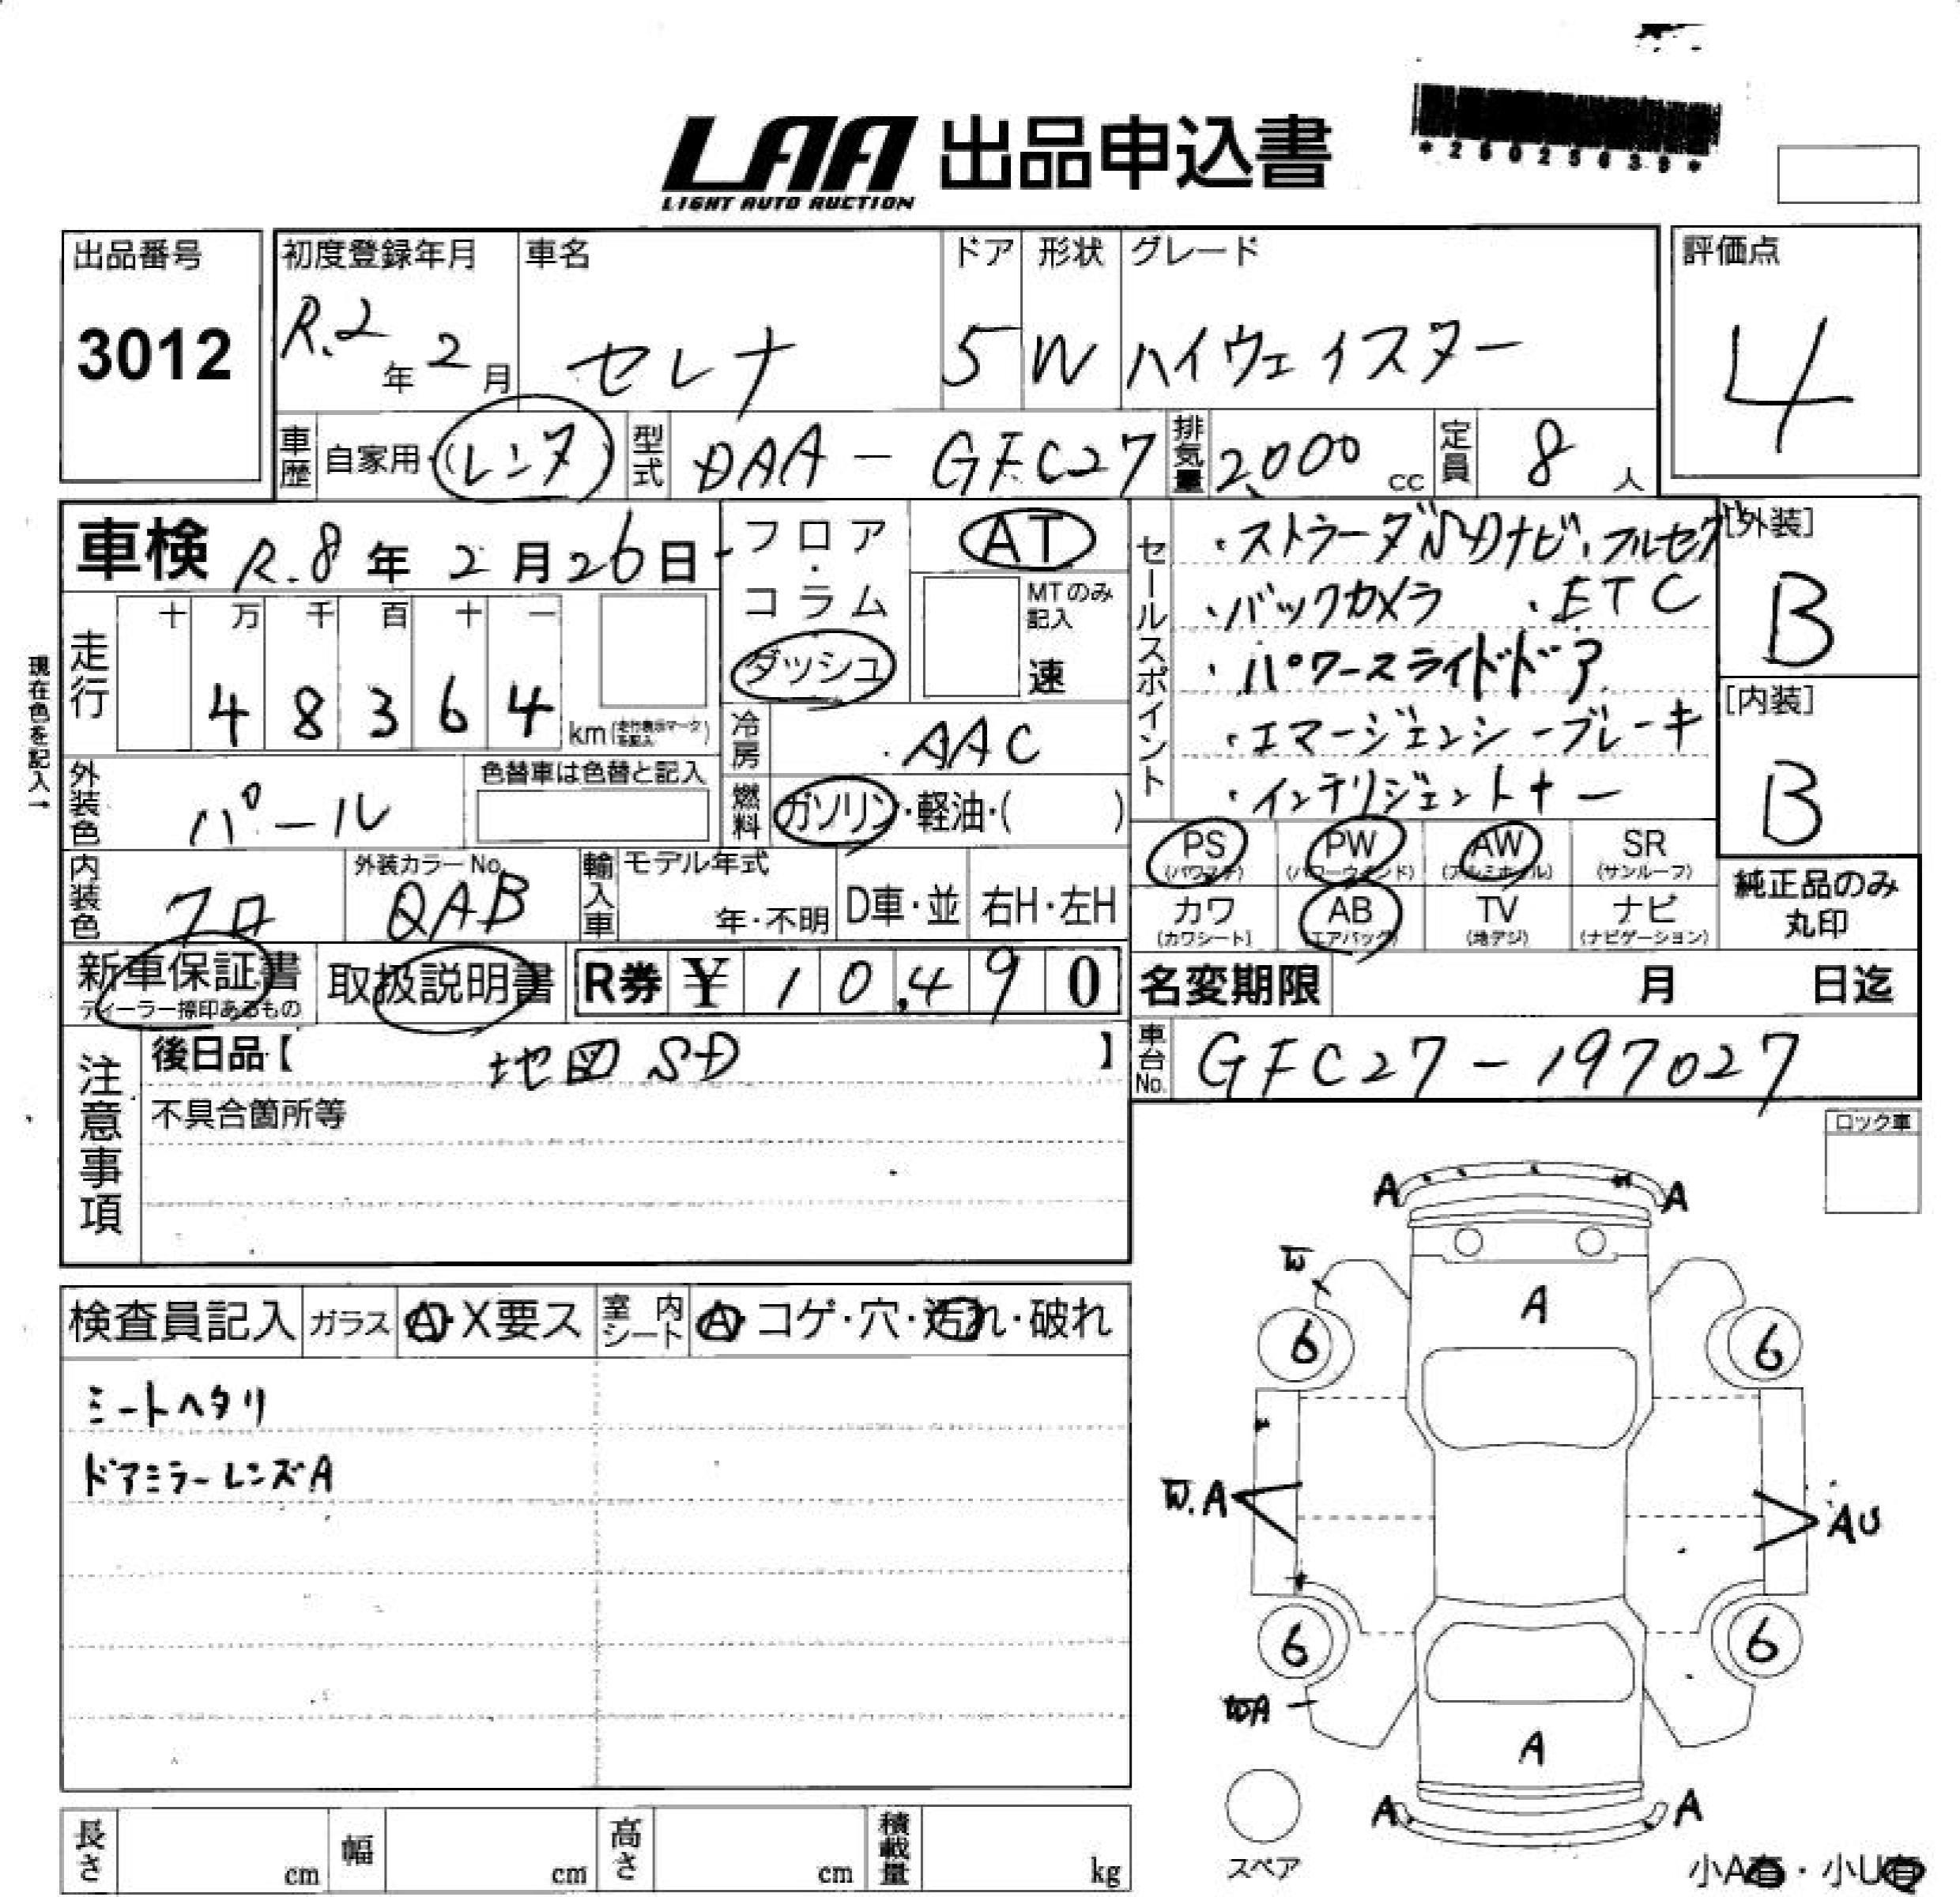 LAA 出品申込書
LIGHT AUTO AUCTION
出品番号
3012
初度登録年月
R.2年2月
車名
セレナ
ドア
5
形状
W
グレード
ハイウェイスター
評価点
4
車歴 自家用・(レンタ)
型式 DAA - GFC27
排気量 2,000 cc
定員 8 人
車検 R.8年2月26日
フロア・コラム
ダッシュ
AT
MTのみ記入
速
走行
十 万 千 百 十 一
4 8 3 6 4 km (走行表示マークを記入)
現在色を記入→
冷房 AAC
外装色 パール
色替車は色替と記入
燃料 ガソリン・軽油・( )
内装色 クロ
外装カラーNo. QAB
輸入車 モデル年式
年・不明
D車・並
右H・左H
セールスポイント
・ストラーダSDナビ・フルセグ
・バックカメラ ・ETC
・パワースライドドア
・エマージェンシーブレーキ
・インテリジェントキー
[外装]
B
[内装]
B
PS (パワステ)
PW (パワーウインド)
AW (アルミホイル)
SR (サンルーフ)
カワ (カワシート)
AB (エアバック)
TV (地デジ)
ナビ (ナビゲーション)
純正品のみ丸印
新車保証書
ディーラー捺印あるもの
取扱説明書
R券 ¥ 10,490
名変期限 月 日迄
注意事項
後日品【 地図SD 】
不具合箇所等
車台No. GFC27-197027
ロック車
検査員記入
ガラス A・X要ス
室内シート A・コゲ・穴・汚れ・破れ
シートヘタリ
ドアミラーレンズA
A A
W
A
6 6
W.A
AU
6 6
WA
A
A A
スペア
小A有・小U有
長さ cm
幅 cm
高さ cm
積載量 kg